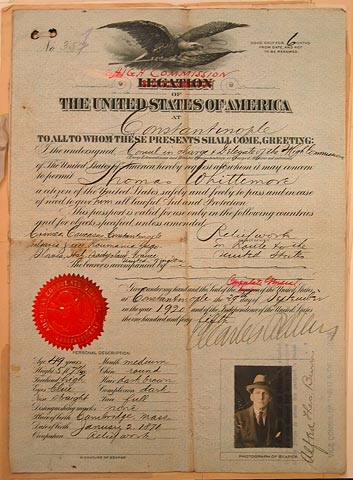 No. 357
GOOD ONLY FOR 6 MONTHS
FROM DATE, AND NOT
TO BE RENEWED.
HIGH COMMISSION
LEGATION
OF
THE UNITED STATES OF AMERICA
AT
Constantinople
TO ALL TO WHOM THESE PRESENTS SHALL COME, GREETING:
I the undersigned
of The United States of America hereby request all whom it may concern
to permit Thomas Whittemore
a citizen of the United States, safely and freely to pass and in case
of need to give him all lawful Aid and Protection.
This passport is valid for use only in the following countries
and for objects specified, unless amended.
Crimea Caucasus Constantinople
Relief work
Roumania
En Route to the
France
United States
The bearer is accompanied by
Consulate General
Given under my hand and the Seal of the Legation of the United States,
at Constantinople the 29th day of September
in the year 1920 and of the Independence of the United States
the one hundred and forty fifth
PERSONAL DESCRIPTION
Age 49 years
Mouth medium
Stature
Chin round
Forehead high
Hair dark brown
Eyes blue
Complexion dark
Nose straight
Face full
Distinguishing marks none
Place of birth Cambridge, Mass
Date of birth January 2, 1871
Occupation Relief work
SIGNATURE OF BEARER
PHOTOGRAPH OF BEARER